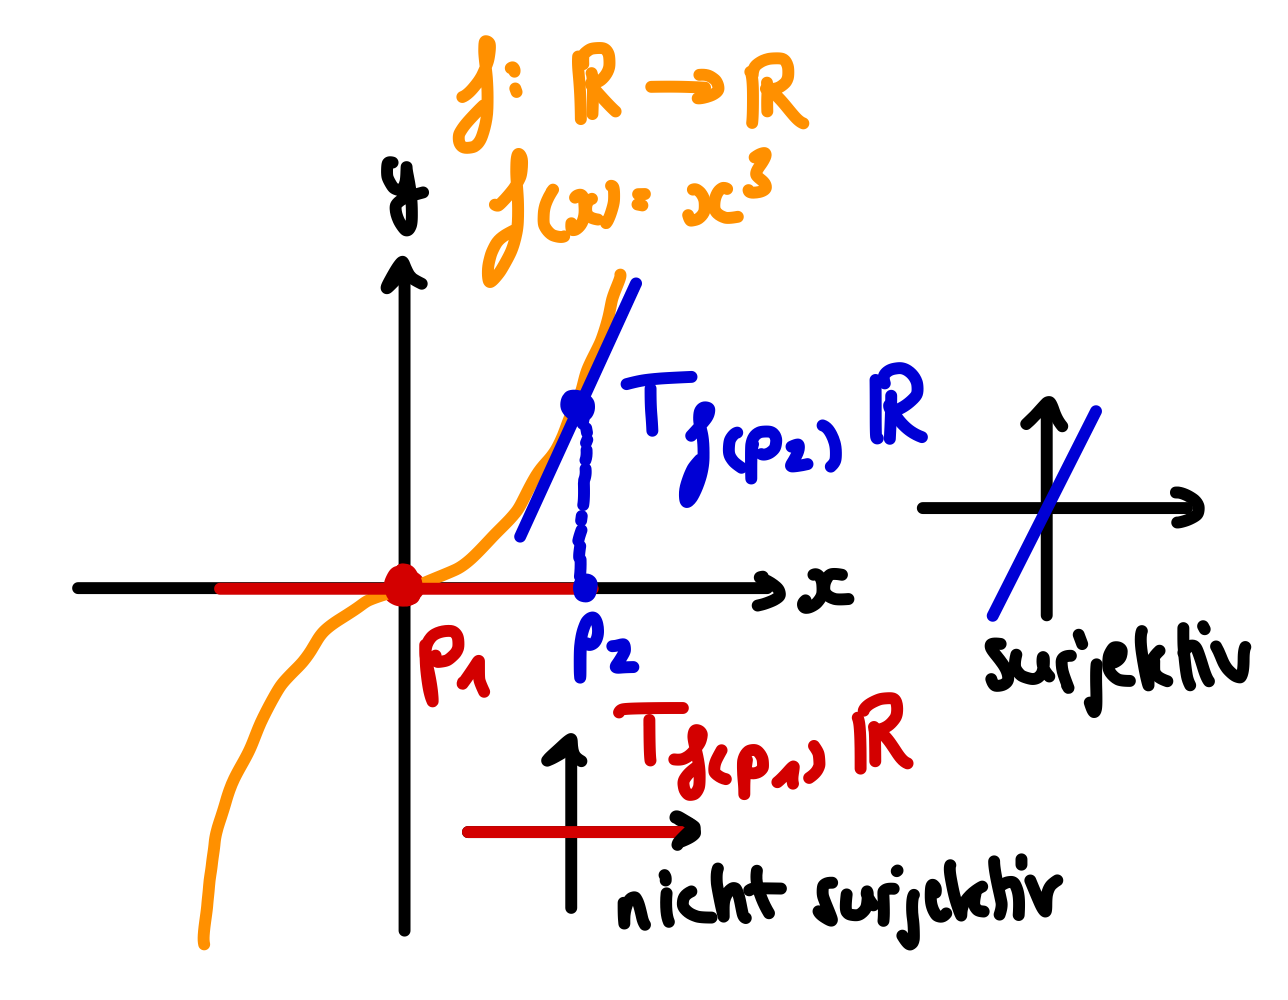 f: ℝ → ℝ
f(x) = x³
y
T_f(p₂) ℝ
x
p₁
p₂
surjektiv
T_f(p₁) ℝ
nicht surjektiv